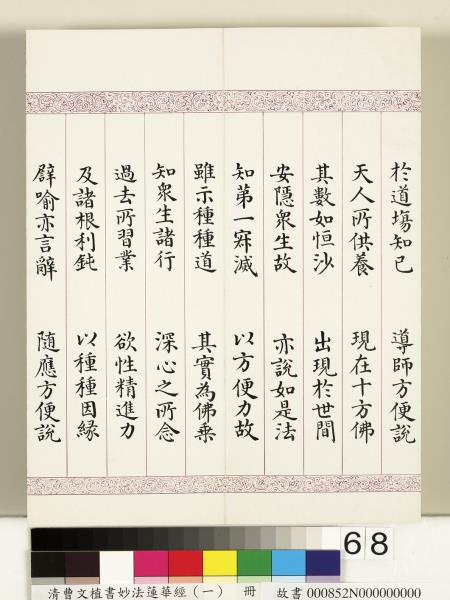 於道場知已　導師方便說
天人所供養　現在十方佛
其數如恒沙　出現於世間
安隱眾生故　亦說如是法
知第一寂滅　以方便力故
雖示種種道　其實為佛乘
知眾生諸行　深心之所念
過去所習業　欲性精進力
及諸根利鈍　以種種因緣
譬喻亦言辭　隨應方便說
68
清曹文植書妙法蓮華經（一）　冊　故書 000852N000000000